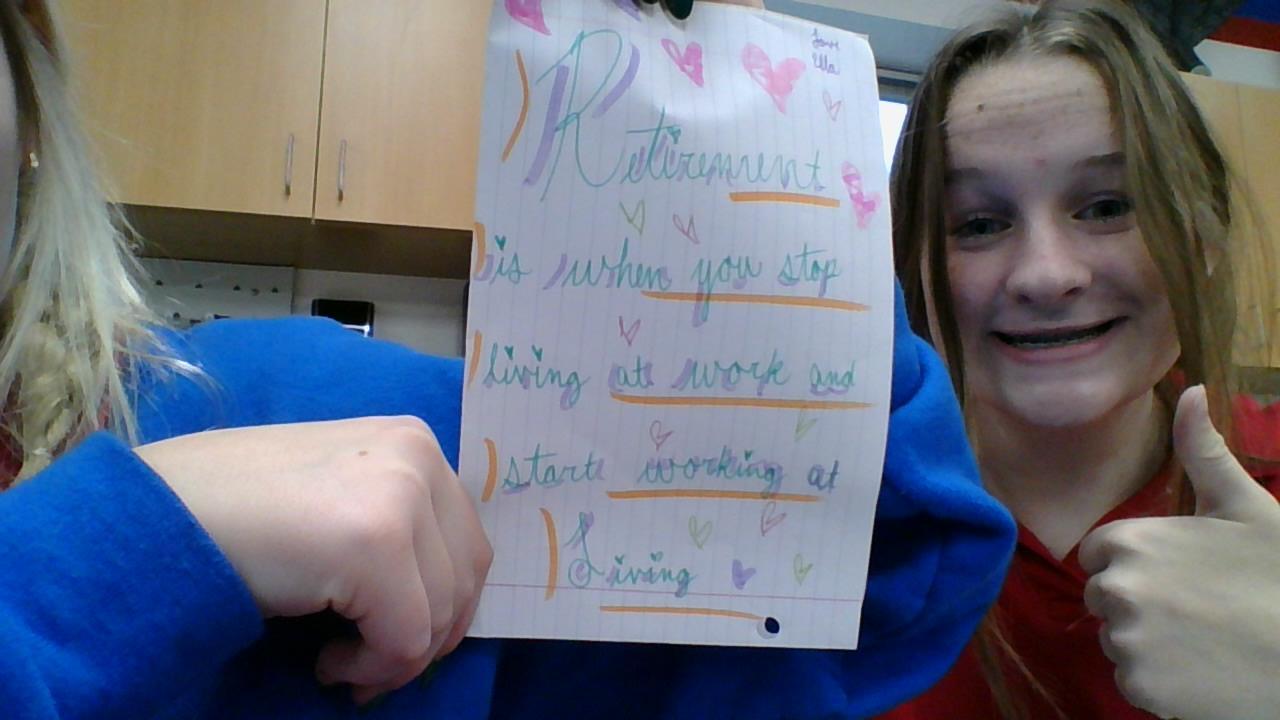 Love
Ella
Retirement
is when you stop
living at work and
start working at
Living.